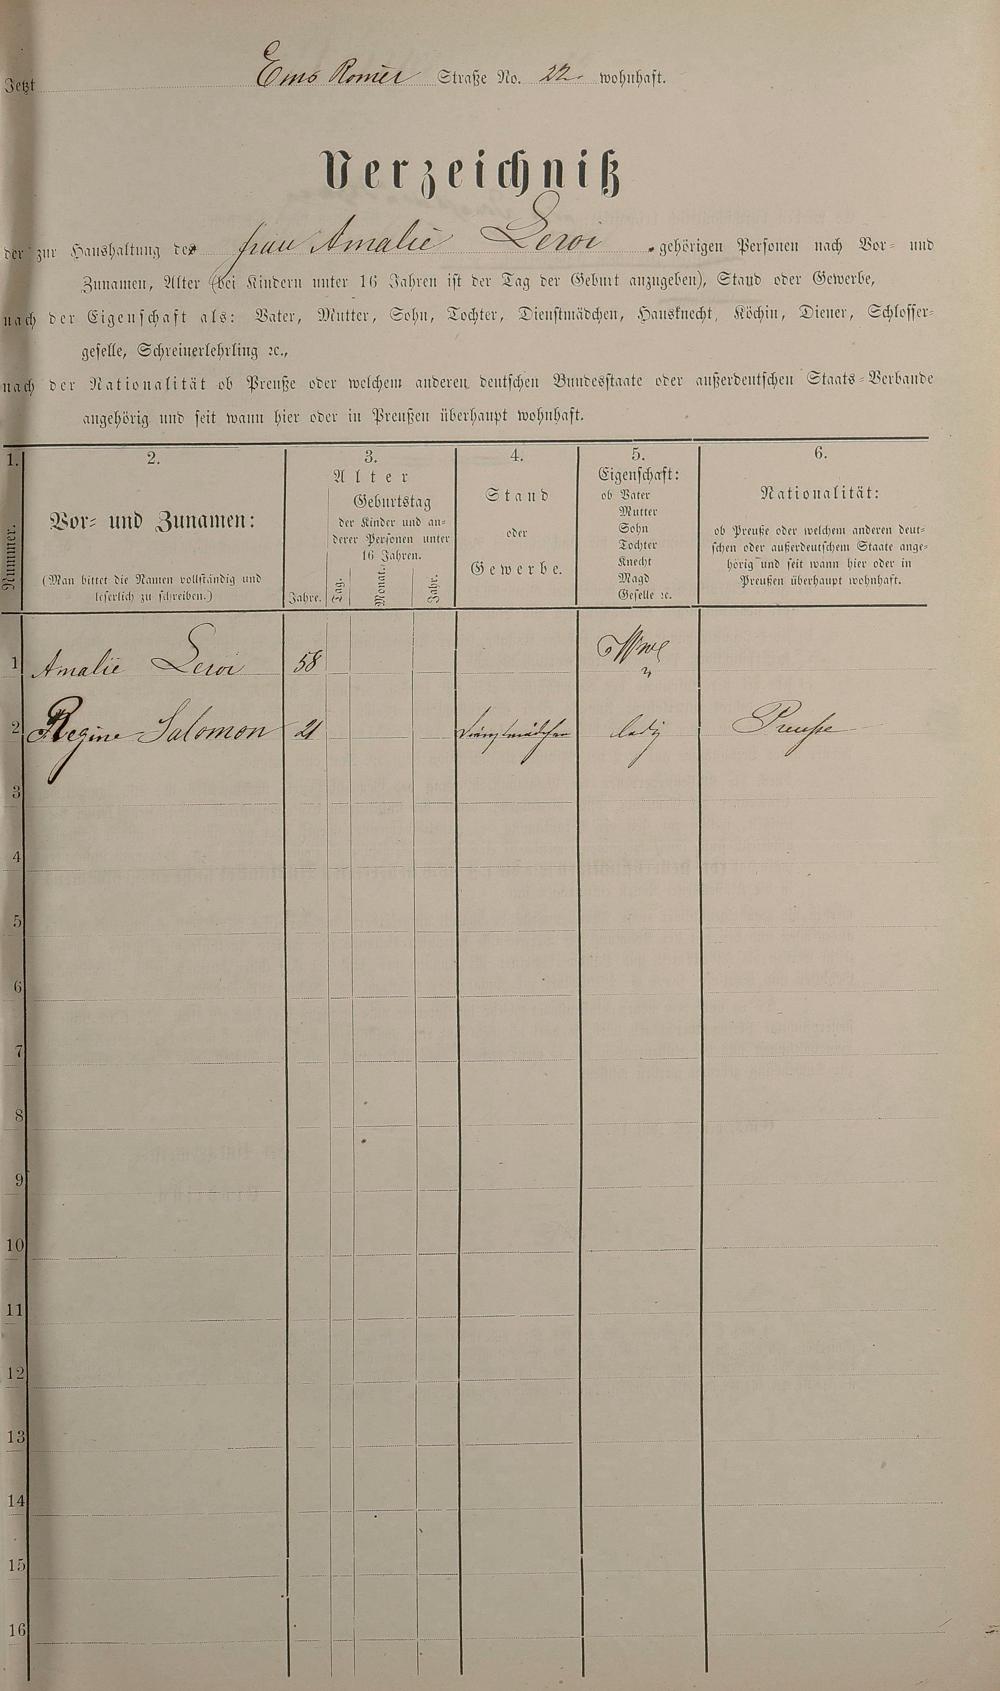 Jetzt Ems Römer Straße No. 22. wohnhaft.
Verzeichniß
der zur Haushaltung der frau Amalie Leroi gehörigen Personen nach Vor- und
Zunamen, Alter (bei Kindern unter 16 Jahren ist der Tag der Geburt anzugeben), Stand oder Gewerbe,
nach der Eigenschaft als: Vater, Mutter, Sohn, Tochter, Dienstmädchen, Hausknecht, Köchin, Diener, Schlosser-
geselle, Schreinerlehrling ꝛc.,
nach der Nationalität ob Preuße oder welchem anderen deutschen Bundesstaate oder außerdeutschen Staats-Verbande
angehörig und seit wann hier oder in Preußen überhaupt wohnhaft.
1.
Nummer.
2.
Vor- und Zunamen:
(Man bittet die Namen vollständig und
leserlich zu schreiben.)
3.
Alter
Geburtstag
der Kinder und an-
derer Personen unter
16 Jahren.
Jahre. Tag. Monat. Jahr.
4.
Stand
oder
Gewerbe.
5.
Eigenschaft:
ob Vater
Mutter
Sohn
Tochter
Knecht
Magd
Geselle ꝛc.
6.
Nationalität:
ob Preuße oder welchem anderen deut-
schen oder außerdeutschem Staate ange-
hörig und seit wann hier oder in
Preußen überhaupt wohnhaft.
1 Amalie Leroi 58 Wwe
2 Regine Salomon 21 Dienstmädchen ledig Preuße
3
4
5
6
7
8
9
10
11
12
13
14
15
16